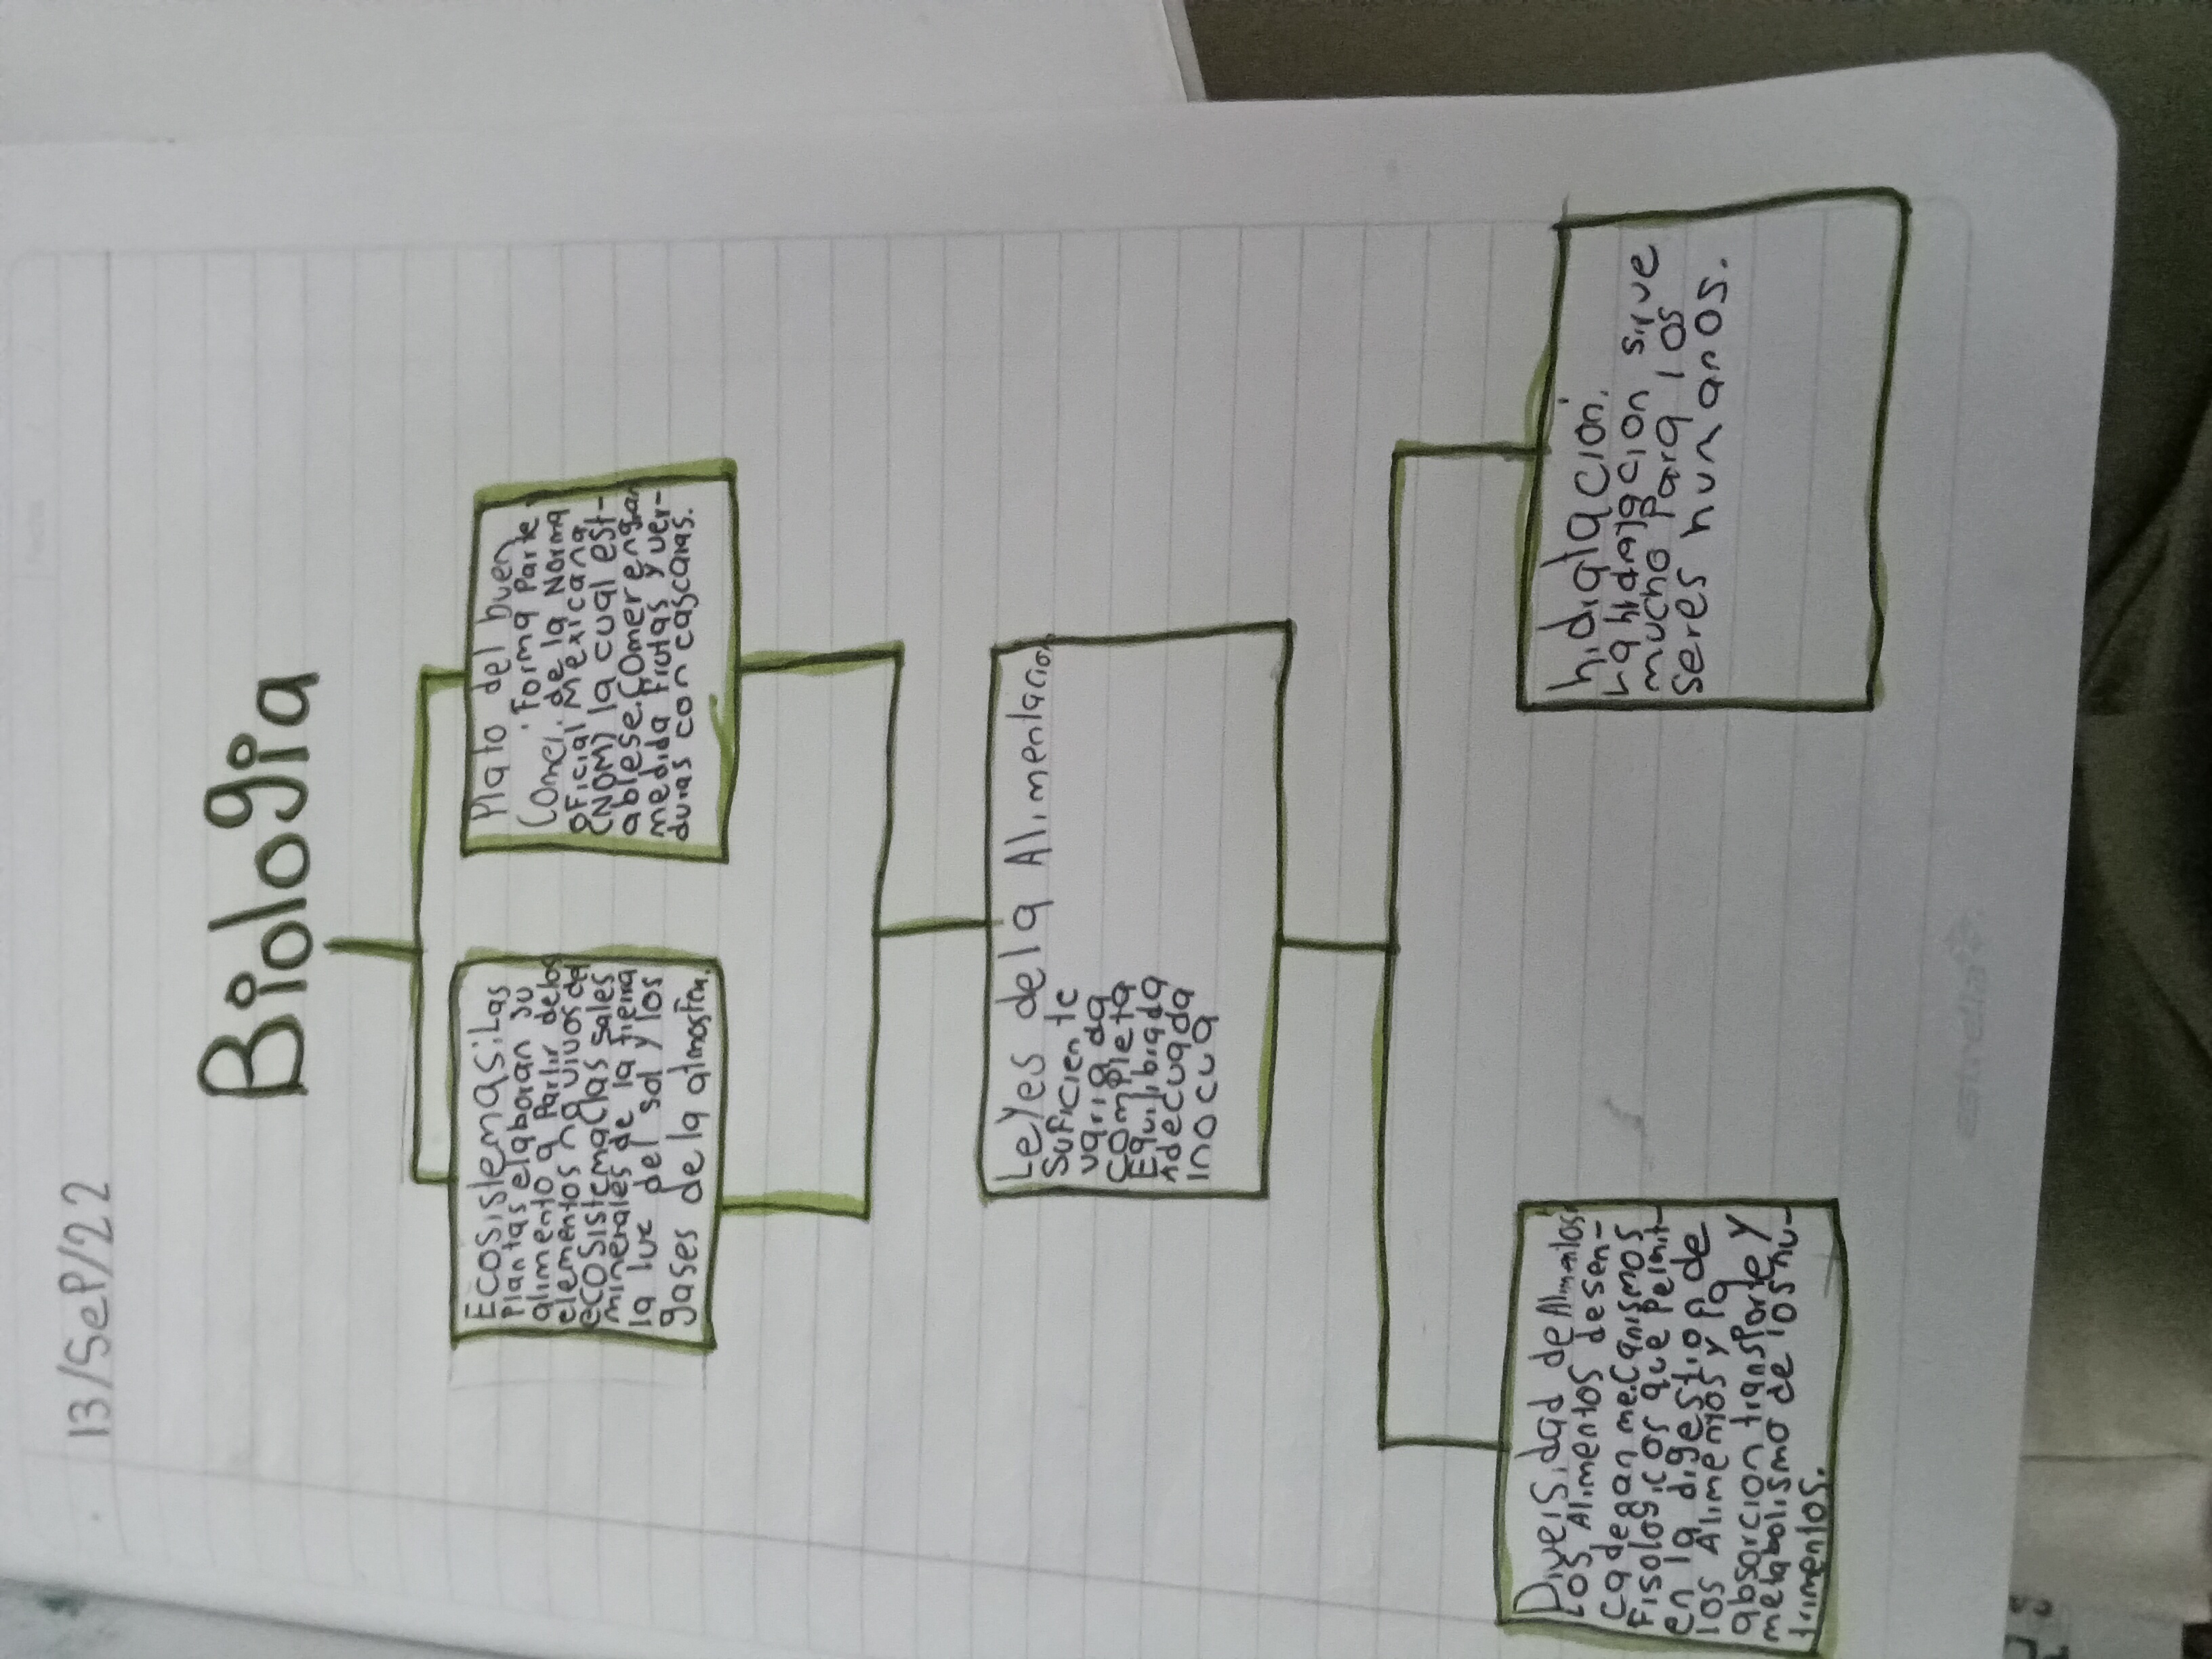 13/SeP/22
Biología
Ecosistemas: Las
Plantas elaboran su
alimento a Partir delos
elementos no vivos del
ecosistema(las sales
minerales de la tierra
la luz del sol y los
gases de la atmosfera.
Plato del buen
Comer. Forma Parte
de la Norma
oficial Mexicana
(NOM) la cual est-
ablese. Comer en gran
medida Frutas y ver-
duras con cascaras.
Leyes de la Alimentacion
Suficiente
variada
completa
Equilibrada
Adecuada
Inocua
Diversidad de Alimentos
Los Alimentos desen-
cadegan mecanismos
Fisologicos que Permit-
en la digestion de
los Alimentos y la
absorcion transporte y
metabolismo de los nu-
trimentos.
hidratacion.
La hidratacion sirve
mucho para los
seres humanos.